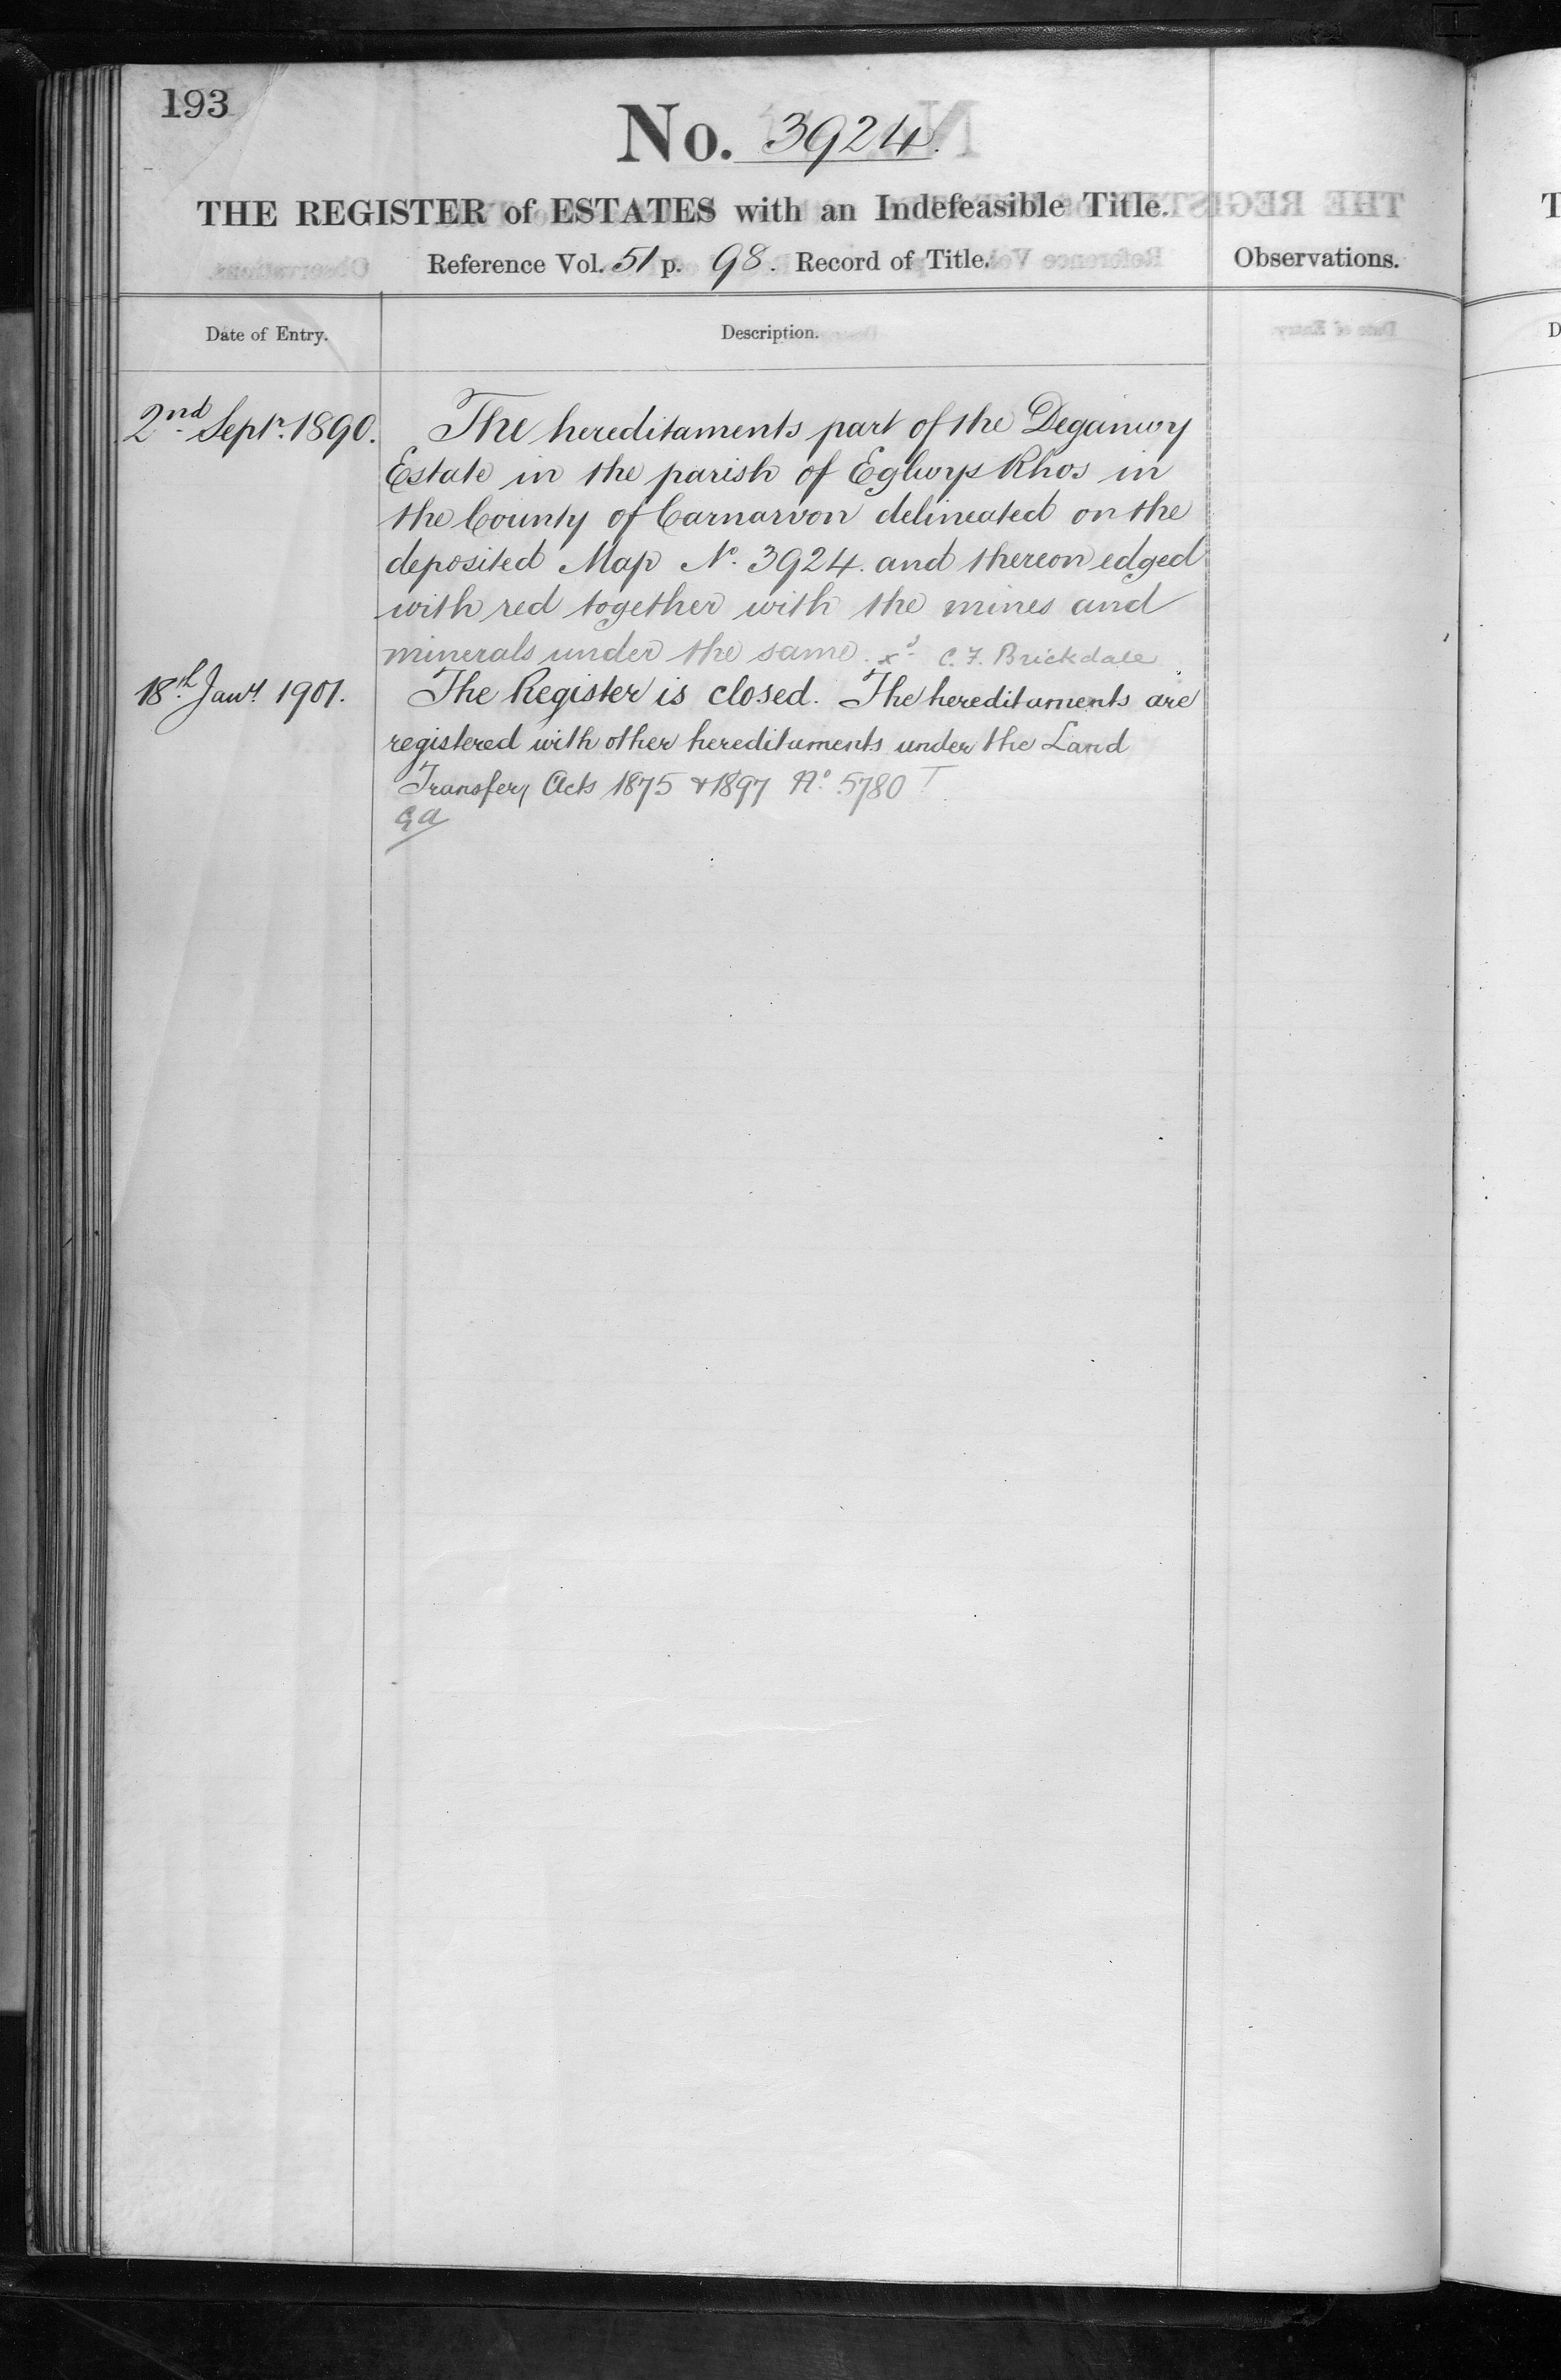 193
No. 3924.
THE REGISTER of ESTATES with an Indefeasible Title.
Reference Vol. 51 p. 98. Record of Title.
Observations.
Date of Entry.
Description.
2nd Septr. 1890.
The hereditaments part of the Deganwy
Estate in the parish of Eglwys Rhos in
the County of Carnarvon delineated on the
deposited Map No. 3924. and thereon edged
with red together with the mines and
minerals under the same. xd. C. F. Brickdale
18th Jany 1901.
The Register is closed. The hereditaments are
registered with other hereditaments under the Land
Transfer Acts 1875 & 1897 No. 5780